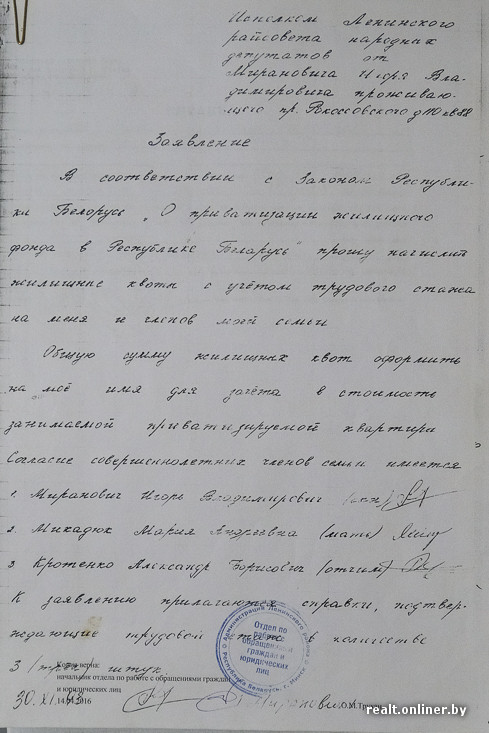 Исполком Ленинского
райсовета народных
депутатов от
Мирановича Игоря Вла-
димировича проживаю-
щего пр. Рокоссовского д 110 кв 88
Заявление
В соответствии с Законом Республи-
ки Белорусь „О приватизации жилищного
фонда в Республике Беларусь" прошу начислить
жилищные квоты с учётом трудового стажа
на меня и членов моей семьи
Общую сумму жилищных квот оформить
на моё имя для зачёта в стоимость
занимаемой приватизируемой квартири
Согласие совершеннолетних членов семьи имеется
1. Миранович Игорь Владимирович
2. Микадюк Мария Андреевна (мать)
3 Кротенко Александр Борисович (отчим)
К заявлению прилагаются справки, подтвер-
ждающие трудовой стаж в количестве
3 (три) штук
Копия верна:
начальник отдела по работе с обращениями граждан
и юридических лиц
14.04.2016
30. XI.
Миранович
Отдел по
работе с
обращениями
граждан и
юридических
лиц
realt.onliner.by